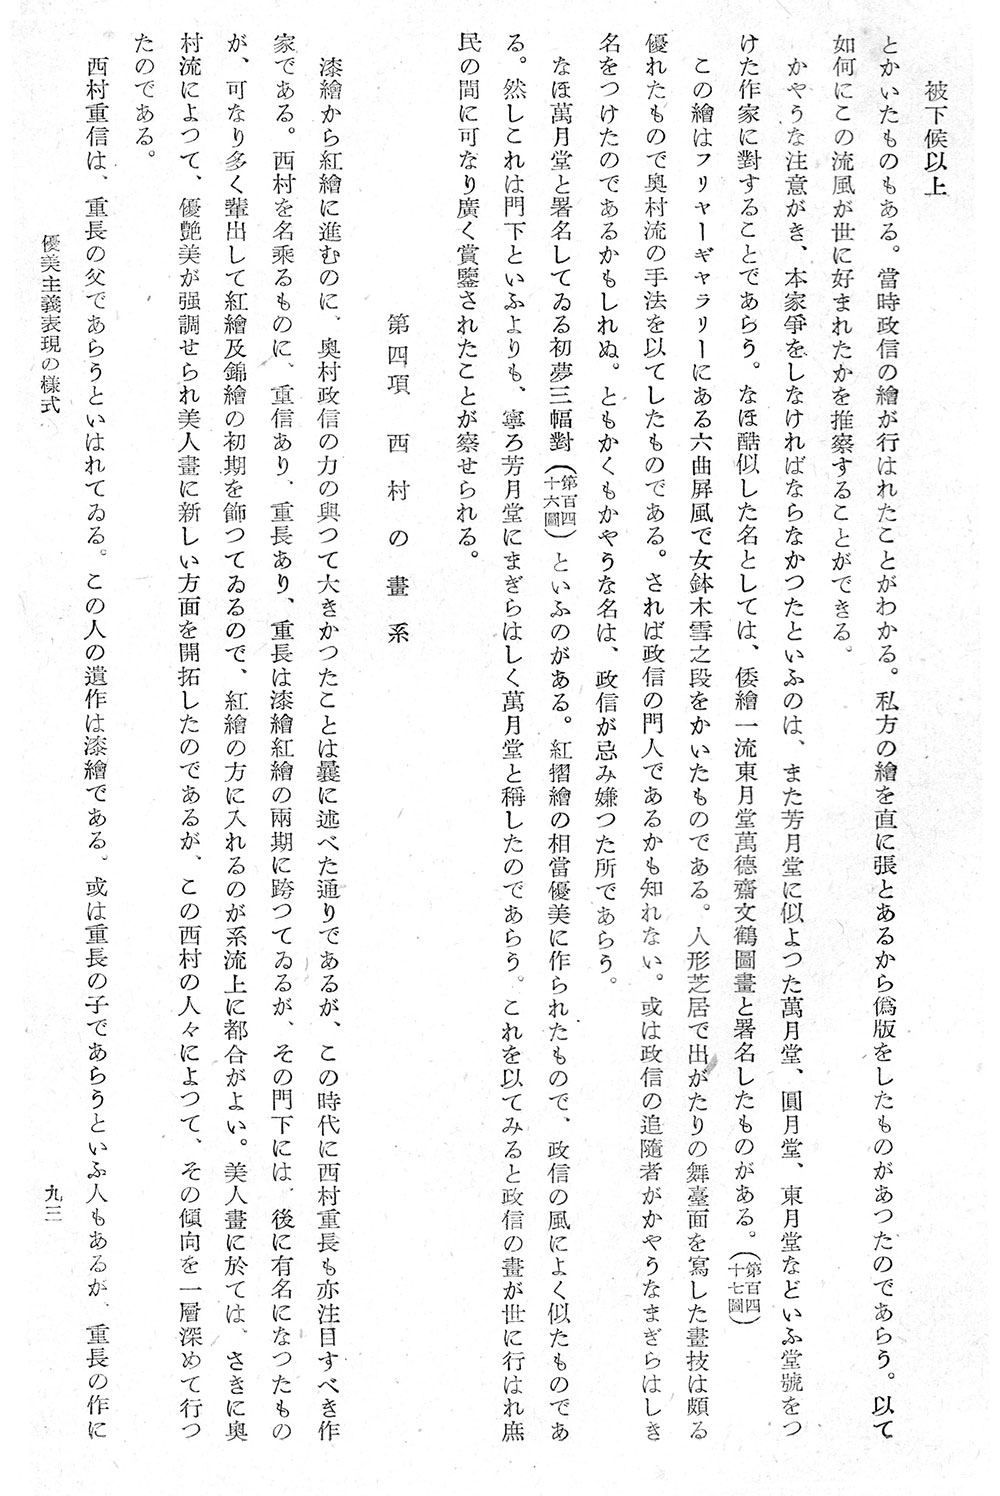 被下候以上
とかいたものもある。當時政信の繪が行はれたことがわかる。私方の繪を直に張とあるから僞版をしたものがあつたのであらう。以て
如何にこの流風が世に好まれたかを推察することができる。
かやうな注意がき、本家爭をしなければならなかつたといふのは、また芳月堂に似よつた萬月堂、圓月堂、東月堂などいふ堂號をつ
けた作家に對することであらう。なほ酷似した名としては、倭繪一流東月堂萬德齋文鶴圖畫と署名したものがある。(第百四十七圖)
この繪はフリャーギャラリーにある六曲屛風で女鉢木雪之段をかいたものである。人形芝居で出がたりの舞臺面を寫した畫技は頗る
優れたもので奧村流の手法を以てしたものである。されば政信の門人であるかも知れない。或は政信の追隨者がかやうなまぎらはしき
名をつけたのであるかもしれぬ。ともかくもかやうな名は、政信が忌み嫌つた所であらう。
なほ萬月堂と署名してゐる初夢三幅對(第百四十六圖)といふのがある。紅摺繪の相當優美に作られたもので、政信の風によく似たものであ
る。然しこれは門下といふよりも、寧ろ芳月堂にまぎらはしく萬月堂と稱したのであらう。これを以てみると政信の畫が世に行はれ庶
民の間に可なり廣く賞鑒されたことが察せられる。
第四項 西村の畫系
漆繪から紅繪に進むのに、奧村政信の力の與つて大きかつたことは曩に述べた通りであるが、この時代に西村重長も亦注目すべき作
家である。西村を名乘るものに、重信あり、重長あり、重長は漆繪紅繪の兩期に跨つてゐるが、その門下には、後に有名になつたもの
が、可なり多く輩出して紅繪及錦繪の初期を飾つてゐるので、紅繪の方に入れるのが系流上に都合がよい。美人畫に於ては、さきに奧
村流によつて、優艶美が强調せられ美人畫に新しい方面を開拓したのであるが、この西村の人々によつて、その傾向を一層深めて行つ
たのである。
西村重信は、重長の父であらうといはれてゐる。この人の遺作は漆繪である。或は重長の子であらうといふ人もあるが、重長の作に
優美主義表現の樣式
九三